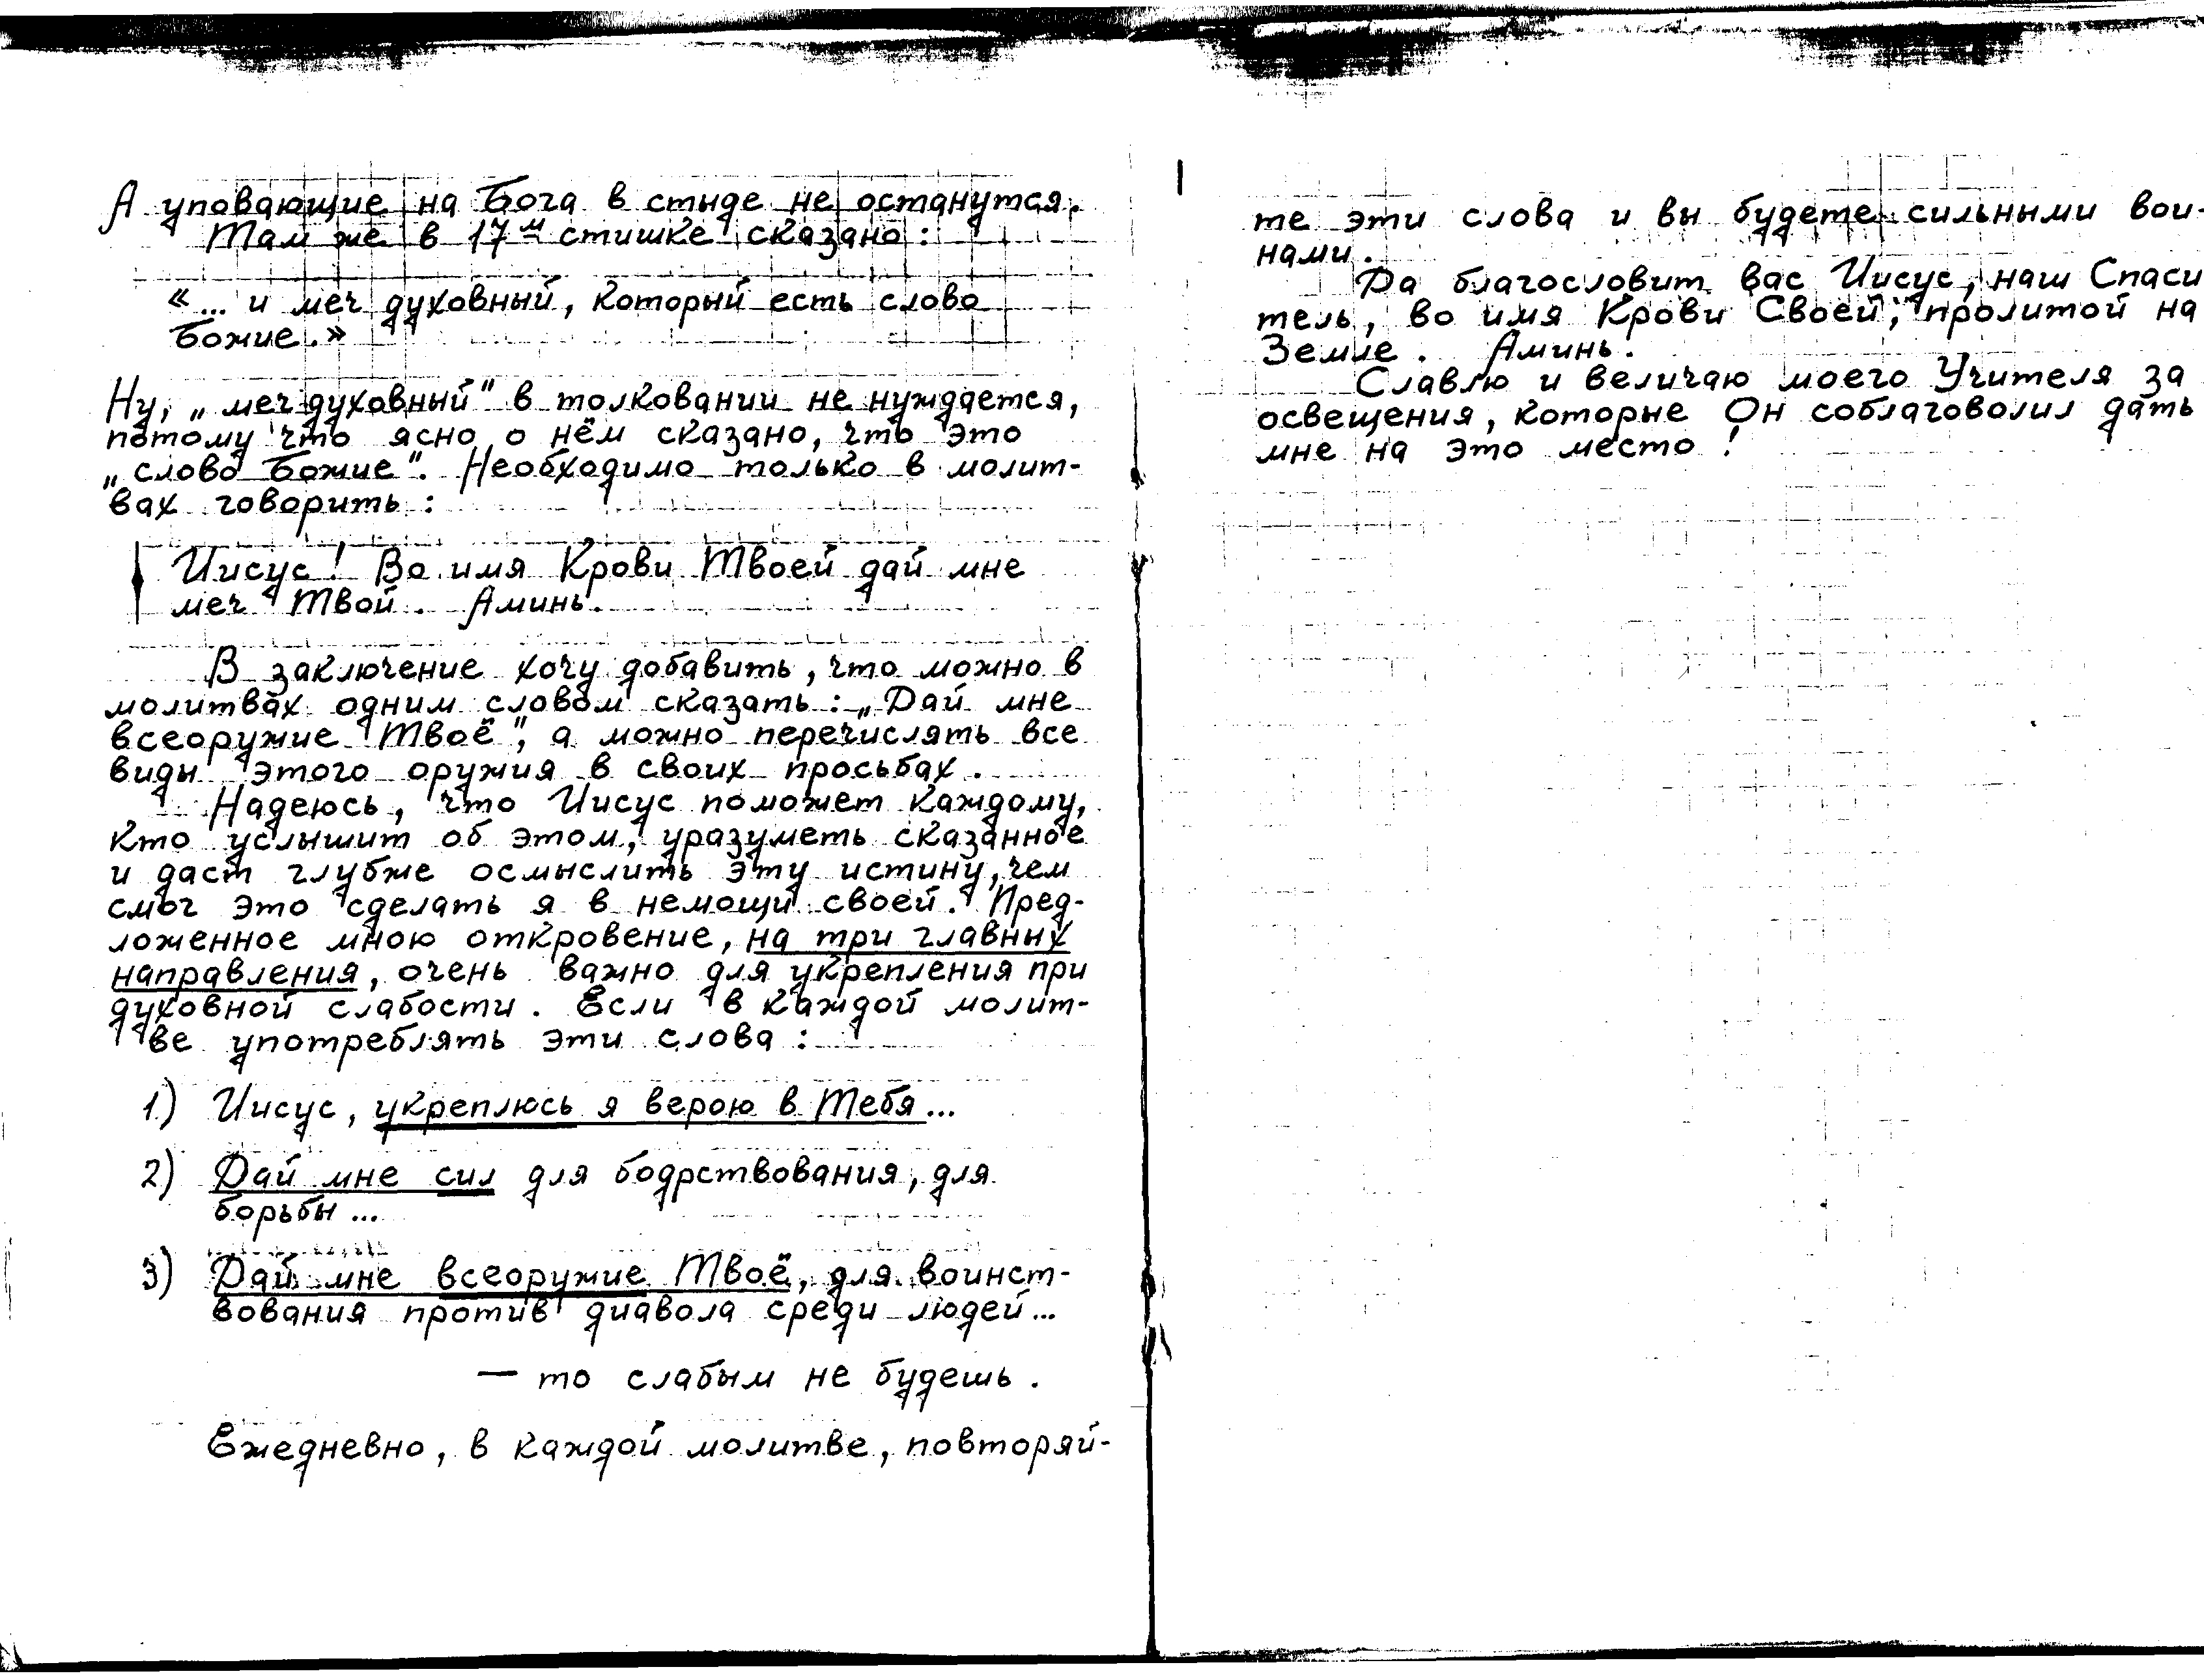 А уповающие на Бога в стыде не останутся.
Там же в 17м стишке сказано:
«... и меч духовный, который есть слово
Божие.»
Ну, „меч духовный" в толковании не нуждается,
потому что ясно о нём сказано, что это
„слово Божие". Необходимо только в молит-
вах говорить:
Иисус! Во имя Крови Твоей дай мне
меч Твой. Аминь.
В заключение хочу добавить, что можно в
молитвах одним словом сказать: „Дай мне
всеоружие Твоё", а можно перечислять все
виды этого оружия в своих просьбах.
Надеюсь, что Иисус поможет каждому,
кто услышит об этом, уразуметь сказанное
и даст глубже осмыслить эту истину, чем
смог это сделать я в немощи своей. Пред-
ложенное мною откровение, на три главных
направления, очень важно для укрепления при
духовной слабости. Если в каждой молит-
ве употреблять эти слова:
1) Иисус, укреплюсь я верою в Тебя...
2) Дай мне сил для бодрствования, для
борьбы...
3) Дай мне всеоружие Твоё, для воинст-
вования против диавола среди людей...
— то слабым не будешь.
Ежедневно, в каждой молитве, повторяй-
те эти слова и вы будете сильными вои-
нами.
Да благословит вас Иисус, наш Спаси
тель, во имя Крови Своей, пролитой на
Земле. Аминь.
Славлю и величаю моего Учителя за
освещения, которые Он соблаговолил дать
мне на это место!